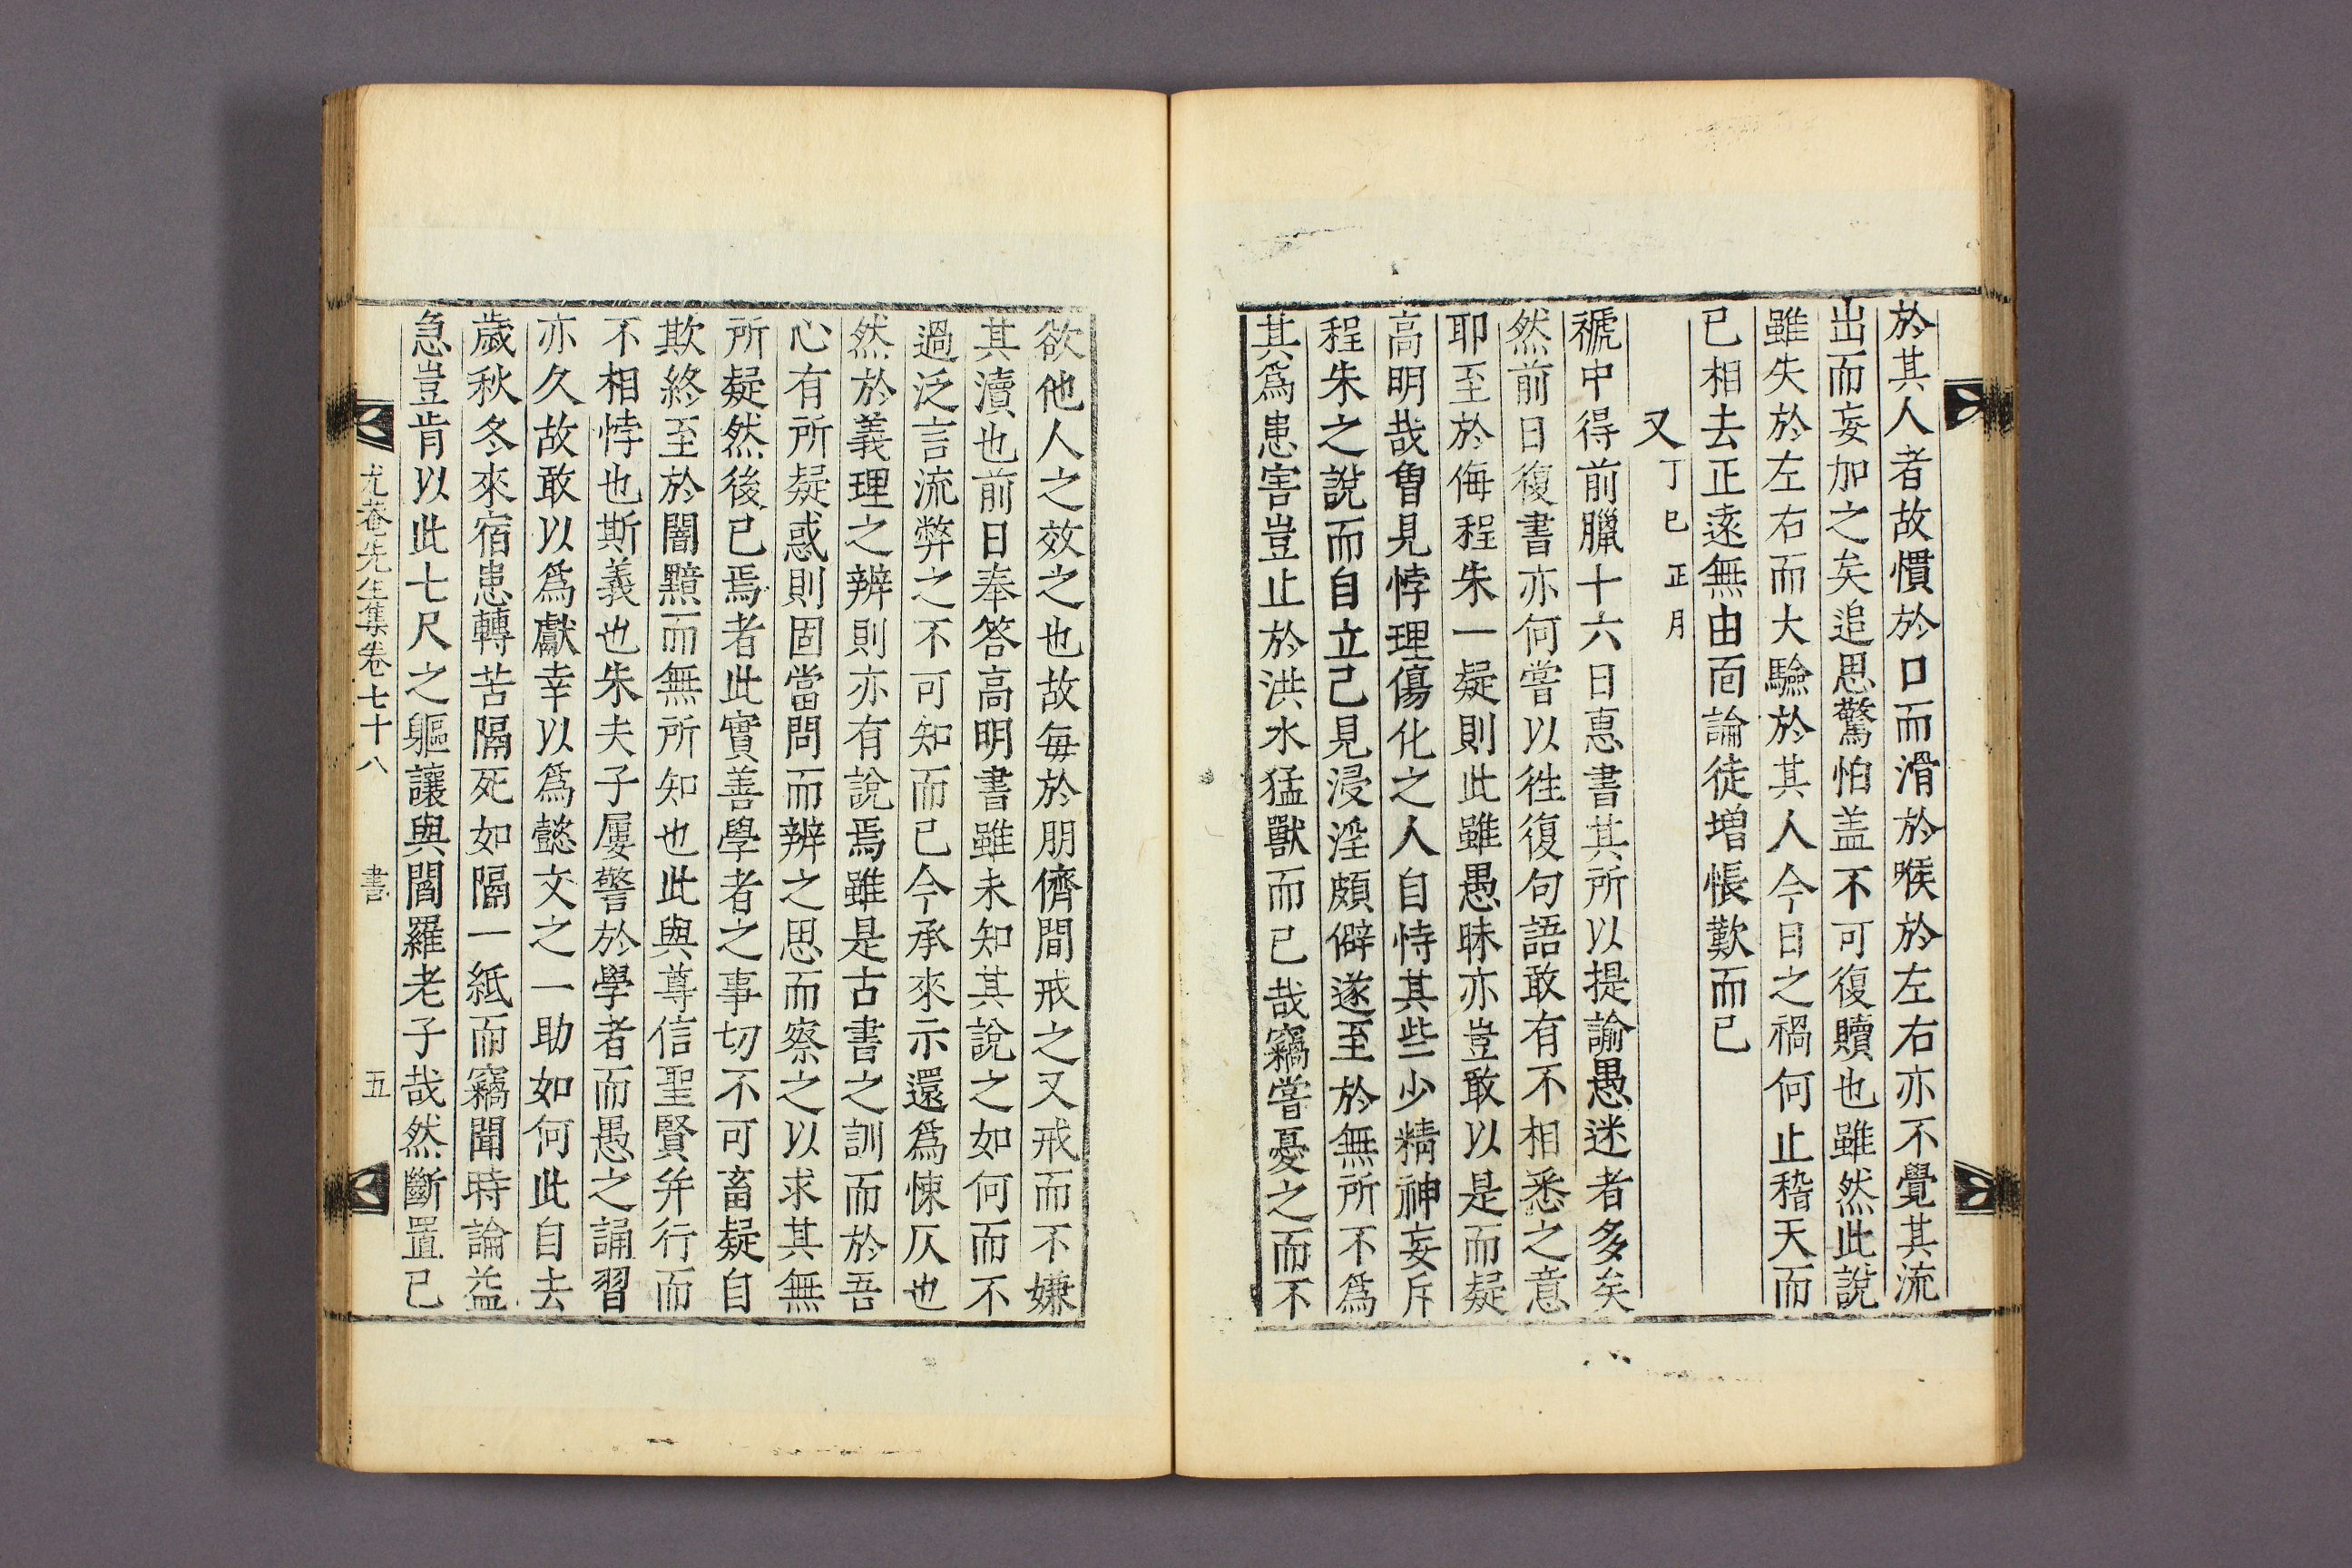 於其人者故慣於口而滑於喉於左右亦不覺其流
出而妄加之矣追思驚怕盖不可復贖也雖然此說
雖失於左右而大驗於其人今日之禍何止稽天而
已相去正遠無由面論徒增悵歎而已
又丁巳正月
褫中得前臘十六日惠書其所以提諭愚迷者多矣
然前日復書亦何嘗以徃復句語敢有不相悉之意
耶至於侮程朱一疑則此雖愚昧亦豈敢以是而疑
高明哉曾見悖理傷化之人自恃其些少精神妄斥
程朱之說而自立己見浸淫頗僻遂至於無所不爲
其爲患害豈止於洪水猛獸而已哉竊嘗憂之而不
欲他人之效之也故每於朋儕間戒之又戒而不嫌
其瀆也前日奉答高明書雖未知其說之如何而不
過泛言流弊之不可知而已今承來示還爲悚仄也
然於義理之辨則亦有說焉雖是古書之訓而於吾
心有所疑惑則固當問而辨之思而察之以求其無
所疑然後已焉者此實善學者之事切不可畜疑自
欺終至於闇黯而無所知也此與尊信聖賢并行而
不相悖也斯義也朱夫子屢警於學者而愚之誦習
亦久故敢以爲獻幸以爲懿文之一助如何此自去
歲秋冬來宿患轉苦隔死如隔一紙而竊聞時論益
急豈肯以此七尺之軀讓與閻羅老子哉然斷置已
尤菴先生集卷七十八 書 五